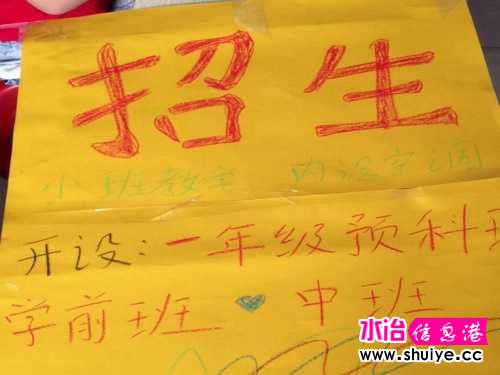 招生
小班教学 内设空调
开设:一年级预科班
学前班 中班
水冶信息港
www.shuiye.cc